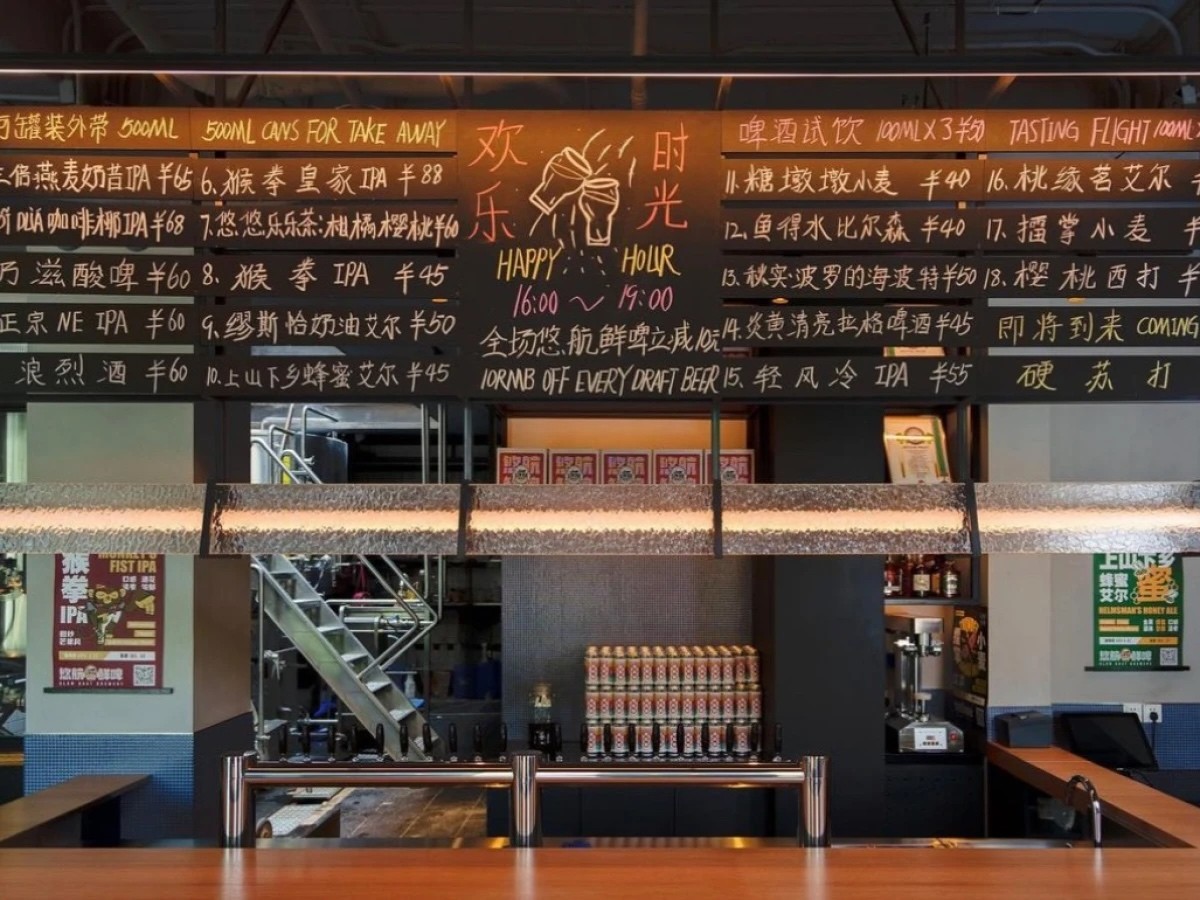 罐装外带 500ML
倍燕麦奶昔IPA ¥65
咖啡椰IPA ¥68
滋酸啤 ¥60
正宗 NE IPA ¥60
浪烈酒 ¥60
500ML CANS FOR TAKE AWAY
6.猴拳皇家IPA ¥88
7.悠悠乐乐茶:柑橘樱桃¥60
8.猴拳 IPA ¥45
9.缪斯恰奶油艾尔 ¥50
10.上山下乡蜂蜜艾尔 ¥45
欢乐时光
HAPPY HOUR
16:00 ~ 19:00
全场悠航鲜啤立减10元
10RMB OFF EVERY DRAFT BEER
啤酒试饮 100ML X 3 ¥50
11.糖墩墩小麦 ¥40
12.鱼得水比尔森 ¥40
13.秋实·波罗的海波特¥50
14.炎黄清亮拉格啤酒¥45
15.轻风冷 IPA ¥55
TASTING FLIGHT 100ML
16.桃缘茗艾尔
17.擂掌小麦 ¥
18.樱桃西打 ¥
即将到来 COMING
硬苏打
猴拳IPA
MONKEY'S
FIST IPA
悠航鲜啤
SLOW BOAT BREWERY
上山下乡
蜂蜜
艾尔
蜜
HELMSMAN'S HONEY ALE
悠航鲜啤